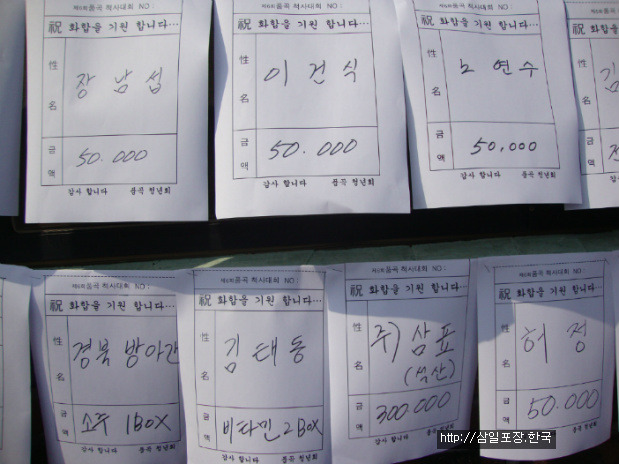 제6회품곡 척사대회 NO :
祝 화합을 기원 합니다...
성명
장남섭
금액
50.000
감사 합니다 품곡 청년회
제6회품곡 척사대회 NO :
祝 화합을 기원 합니다...
성명
이건식
금액
50.000
감사 합니다 품곡 청년회
척사대회 NO :
祝 화합을 기원 합니다...
성명
노연수
금액
50,000
감사 합니다 품곡 청년회
祝
성명
김
금액
감
제6회품곡 척사대회 NO :
祝 화합을 기원 합니다...
성명
경북 방아간
금액
소주 1BOX
감사 합니다 품곡 청년회
제6회품곡 척사대회 NO :
祝 화합을 기원 합니다...
성명
김태동
금액
비타민 2BOX
감사 합니다 품곡 청년회
제6회품곡 척사대회 NO :
祝 화합을 기원 합니다...
성명
주) 삼표
(석산)
금액
300.000
감사 합니다 품곡 청년회
제6회품곡 척사대회 NO :
祝 화합을 기원 합니다...
성명
허정
금액
50.000
http://삼일포장.한국